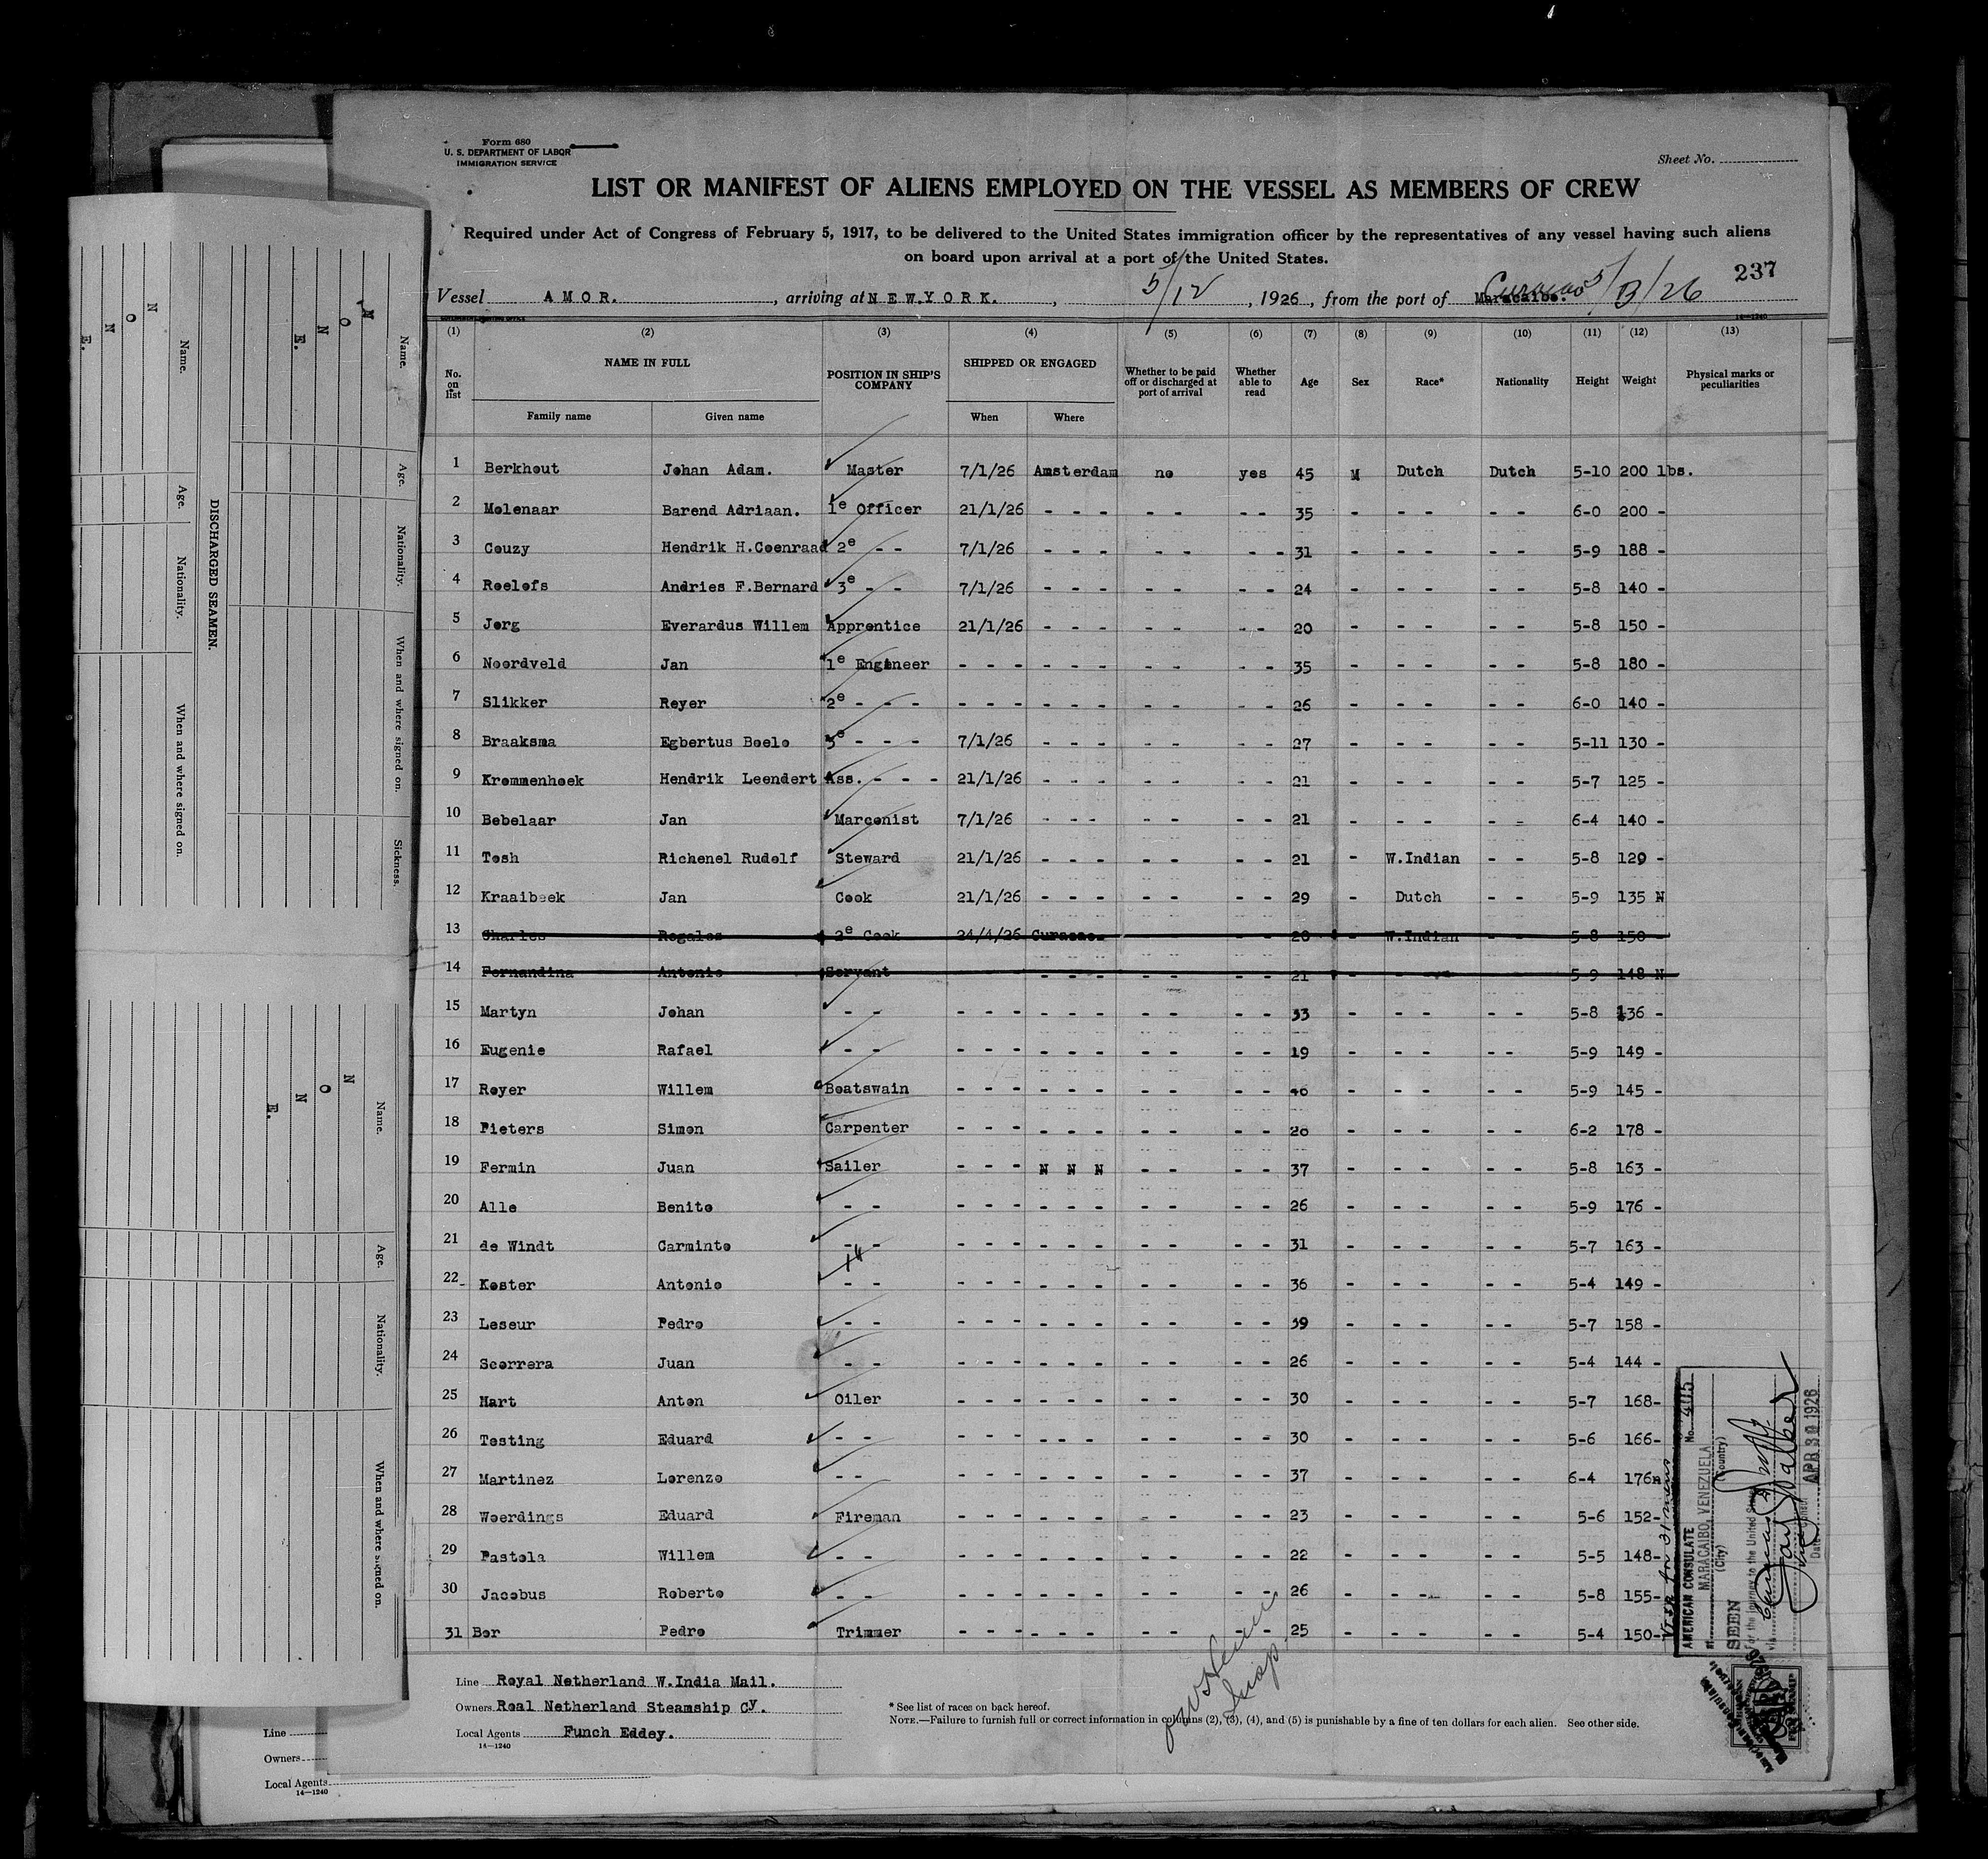 Form 680
U. S. DEPARTMENT OF LABOR
IMMIGRATION SERVICE
Sheet No.
LIST OR MANIFEST OF ALIENS EMPLOYED ON THE VESSEL AS MEMBERS OF CREW
Required under Act of Congress of February 5, 1917, to be delivered to the United States immigration officer by the representatives of any vessel having such aliens
on board upon arrival at a port of the United States.
237
Vessel AMOR. , arriving at NEW.YORK. , 5/12 , 1926 , from the port of Maracaibo. Curacao 5/3/26
(1) (2) (3) (4) (5) (6) (7) (8) (9) (10) (11) (12) (13)
No. on list NAME IN FULL Family name Given name POSITION IN SHIP'S COMPANY SHIPPED OR ENGAGED When Where Whether to be paid off or discharged at port of arrival Whether able to read Age Sex Race* Nationality Height Weight Physical marks or peculiarities
1 Berkhout Johan Adam. Master 7/1/26 Amsterdam no yes 45 M Dutch Dutch 5-10 200 lbs.
2 Molenaar Barend Adriaan. 1e Officer 21/1/26 - - - - - - - 35 - - - - - 6-0 200 -
3 Couzy Hendrik H.Coenraad 2e - - 7/1/26 - - - - - - - 31 - - - - - 5-9 188 -
4 Roelofs Andries F.Bernard 3e - - 7/1/26 - - - - - - - 24 - - - - - 5-8 140 -
5 Jorg Everardus Willem Apprentice 21/1/26 - - - - - - - 20 - - - - - 5-8 150 -
6 Noordveld Jan 1e Engineer - - - - - - - - - - 35 - - - - - 5-8 180 -
7 Slikker Reyer 2e - - - - - - - - - - - - - 26 - - - - - 6-0 140 -
8 Braaksma Egbertus Boele 3e - - - 7/1/26 - - - - - - - 27 - - - - - 5-11 130 -
9 Krommenhoek Hendrik Leendert Ass. - - - 21/1/26 - - - - - - - 21 - - - - - 5-7 125 -
10 Bebelaar Jan Marconist 7/1/26 - - - - - - - 21 - - - - - 6-4 140 -
11 Tosh Richenel Rudolf Steward 21/1/26 - - - - - - - 21 - W.Indian - - 5-8 129 -
12 Kraaibeek Jan Cook 21/1/26 - - - - - - - 29 - Dutch - - 5-9 135 N
13 Charles Rogales 2e Cook 24/4/26 Curacao - - - - 28 - W.Indian - - 5-8 150 -
14 Fernandina Antonio Servant - - - - - - - 21 - - - - - 5-9 148 N
15 Martyn Johan - - - - - - - - - - - - 33 - - - - - 5-8 136 -
16 Eugenie Rafael - - - - - - - - - - - - 19 - - - - - 5-9 149 -
17 Royer Willem Boatswain - - - - - - - - - - 40 - - - - - 5-9 145 -
18 Pieters Simon Carpenter - - - - - - - - - - 20 - - - - - 6-2 178 -
19 Fermin Juan Sailer - - - N N N - - - - 37 - - - - - 5-8 163 -
20 Alle Benito - - - - - - - - - - - - 26 - - - - - 5-9 176 -
21 de Windt Carminto - - - - - - - - - - - - 31 - - - - - 5-7 163 -
22 Koster Antonio - - - - - - - - - - - - 36 - - - - - 5-4 149 -
23 Leseur Pedro - - - - - - - - - - - - 39 - - - - - 5-7 158 -
24 Scorrera Juan - - - - - - - - - - - - 26 - - - - - 5-4 144 -
25 Hart Anton Oiler - - - - - - - - - - 30 - - - - - 5-7 168-
26 Testing Eduard - - - - - - - - - - - - 30 - - - - - 5-6 166-
27 Martinez Lorenzo - - - - - - - - - - - - 37 - - - - - 6-4 176n
28 Woerdings Eduard Fireman - - - - - - - - - - 23 - - - - - 5-6 152-
29 Pastola Willem - - - - - - - - - - - - 22 - - - - - 5-5 148-
30 Jacobus Roberto - - - - - - - - - - - - 26 - - - - - 5-8 155-
31 Bor Pedro Trimmer - - - - - - - - - - 25 - - - - - 5-4 150-
Line Royal Netherland W.India Mail.
Owners Roal Netherland Steamship Cy.
Local Agents Funch Eddey.
14—1240
* See list of races on back hereof.
NOTE.—Failure to furnish full or correct information in columns (2), (3), (4), and (5) is punishable by a fine of ten dollars for each alien. See other side.
Insp.
AMERICAN CONSULATE No. 405
at MARACAIBO, VENEZUELA
(City) (Country)
SEEN
For the journey to the United States
via Curacao
APR 30 1926
Date
DISCHARGED SEAMEN.
Name. Age. Nationality. When and where signed on. Sickness.
N O N E.
Name. Age. Nationality. When and where signed on.
N O N E.
Name. Age. Nationality. When and where signed on.
N O N E.
Line
Owners
Local Agents
14—1240